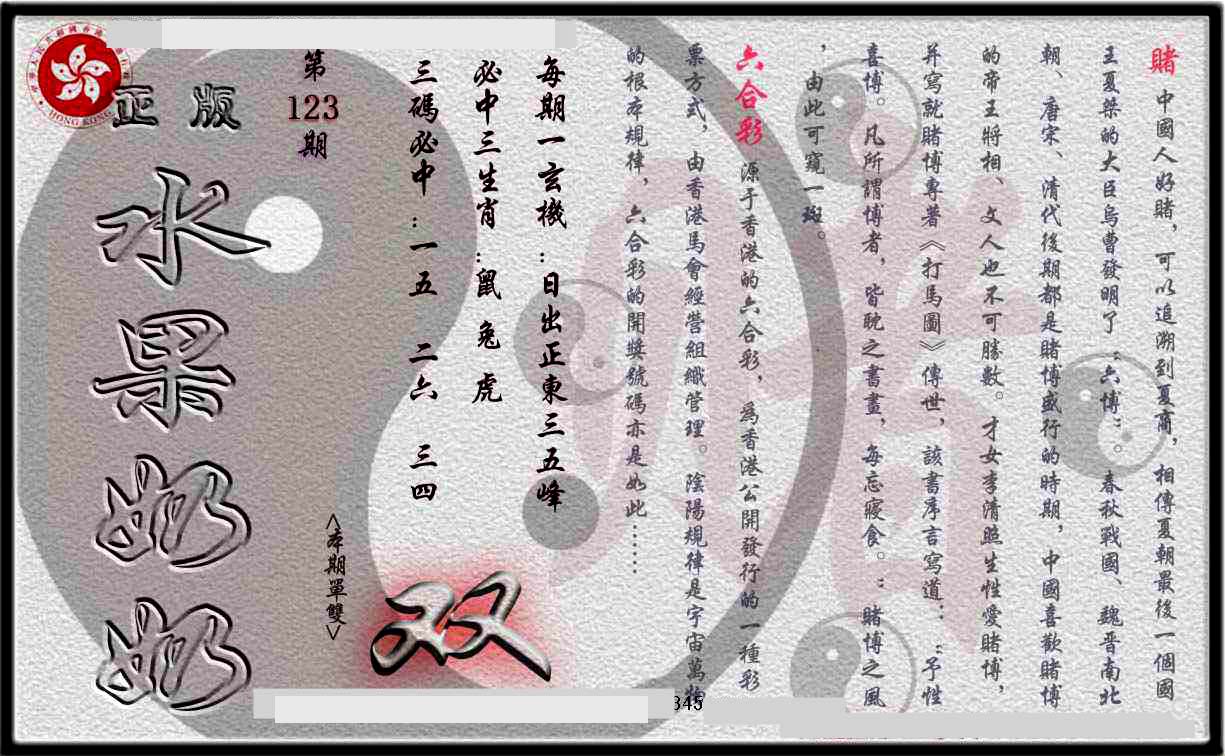 賭 中國人好賭，可以追溯到夏商，相傳夏朝最後一個國
王夏桀的大臣烏曹發明了“六博”。春秋戰國、魏晉南北
朝、唐宋、清代後期都是賭博盛行的時期，中國喜歡賭博
的帝王將相、文人也不可勝數。才女李清照生性愛賭博，
并寫就賭博專著《打馬圖》傳世，該書序言寫道：“予性
喜博。凡所謂博者，皆耽之書畫，每忘寢食。”賭博之風
，由此可窺一斑。
六合彩 源于香港的六合彩，為香港公開發行的一種彩
票方式，由香港馬會經營組織管理。陰陽規律是宇宙萬物
的根本規律，六合彩的開獎號碼亦是如此……
每期一玄機:日出正東三五峰
必中三生肖:鼠 兔 虎
三碼必中:一五 二六 三四
<本期單雙>
双
第
123
期
正版
水果奶奶
HONG KONG
345